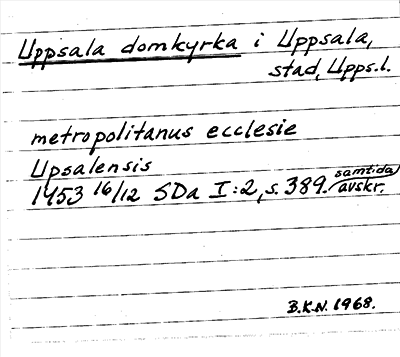 Uppsala domkyrka i Uppsala,
stad, Upps.l.
metropolitanus ecclesie
Upsalensis
1453 16/12 SDa I:2, s. 389. samtida avskr.
B.K.N. 1968.